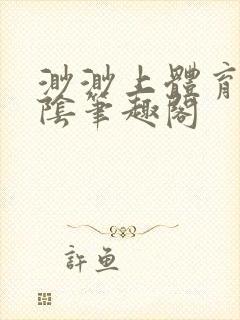 渺渺上體育
陰筆趣閣
許魚